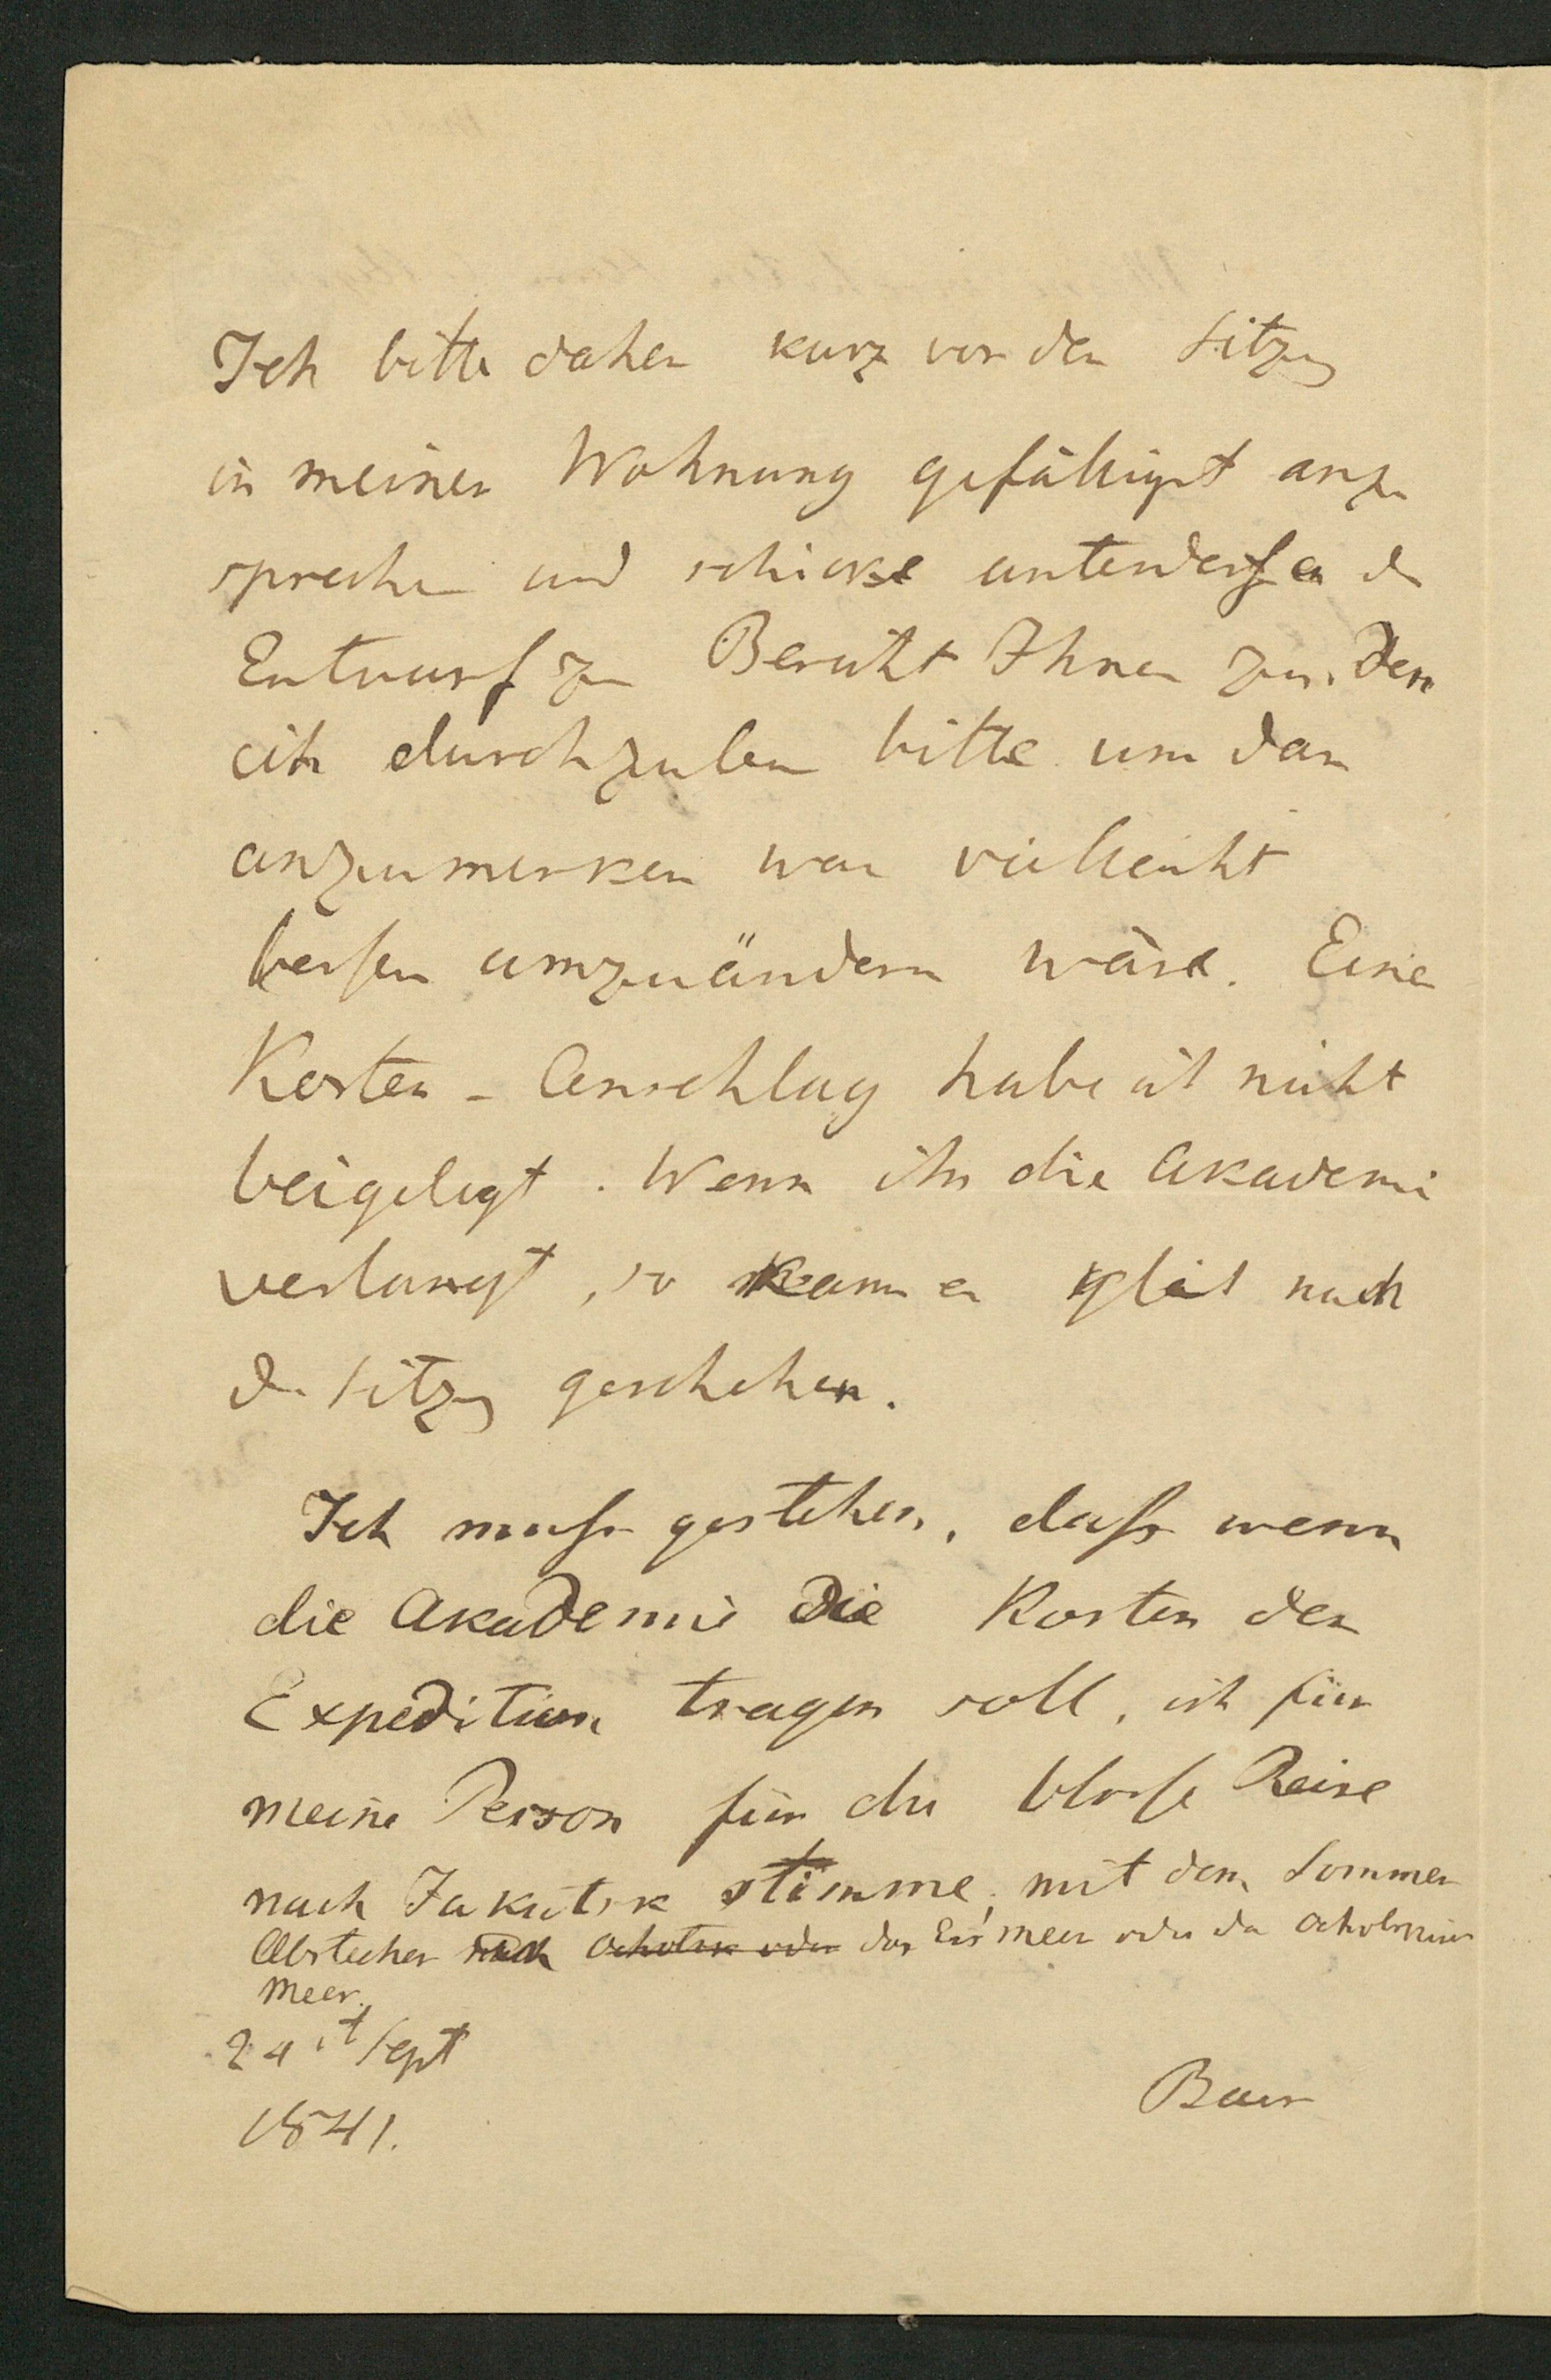 Ich bitte daher kurz vor der Sitzung
in meiner Wohnung gefälligst anzu
sprechen und schicke unterdessen den
Entwurf zum Bericht Ihnen zu, den
ich durchzulesen bitte um dann
anzumerken was vielleicht
besser umzuändern wäre. Einen
Kosten-Anschlag habe ich nicht
beigelegt. Wenn ihn die Akademie
verlangt, so kann es gleich nach
der Sitzung geschehen.
Ich muss gestehen, dass wenn
die Akademie die Kosten der
Expedition tragen soll, ich für
meine Person für die blosse Reise
nach Jakutsk stimme, mit dem Sommer
Abstecher nach Ochotsk oder das Eismeer oder das Ochotskische
Meer.
24st Sept
1841.
Baer